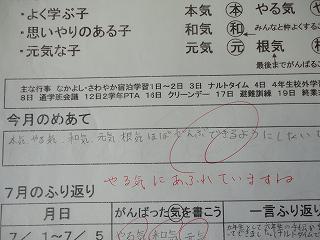 ・よく学ぶ子 本気 本 やる気
・思いやりのある子 和気 和 みんなと仲よくするこ
・元気な子 元気 元 根気
最後までがんばるこ
主な行事 なかよし・さわやか宿泊学習1日～2日 3日 ナルトタイム 4日 4年生校外学習
8日 通学班会議 12日2学年PTA 16日 クリーンデー 17日 避難訓練 19日 終業
今月のめあて
本気 やる気 和気 元気 根気 ほぼぜんぶできるようにしたいで
やる気にあふれていますね
7月のふり返り
月日 がんばった気を書こう 一言ふり返り
7/1～7/5 やる気 和気 元気